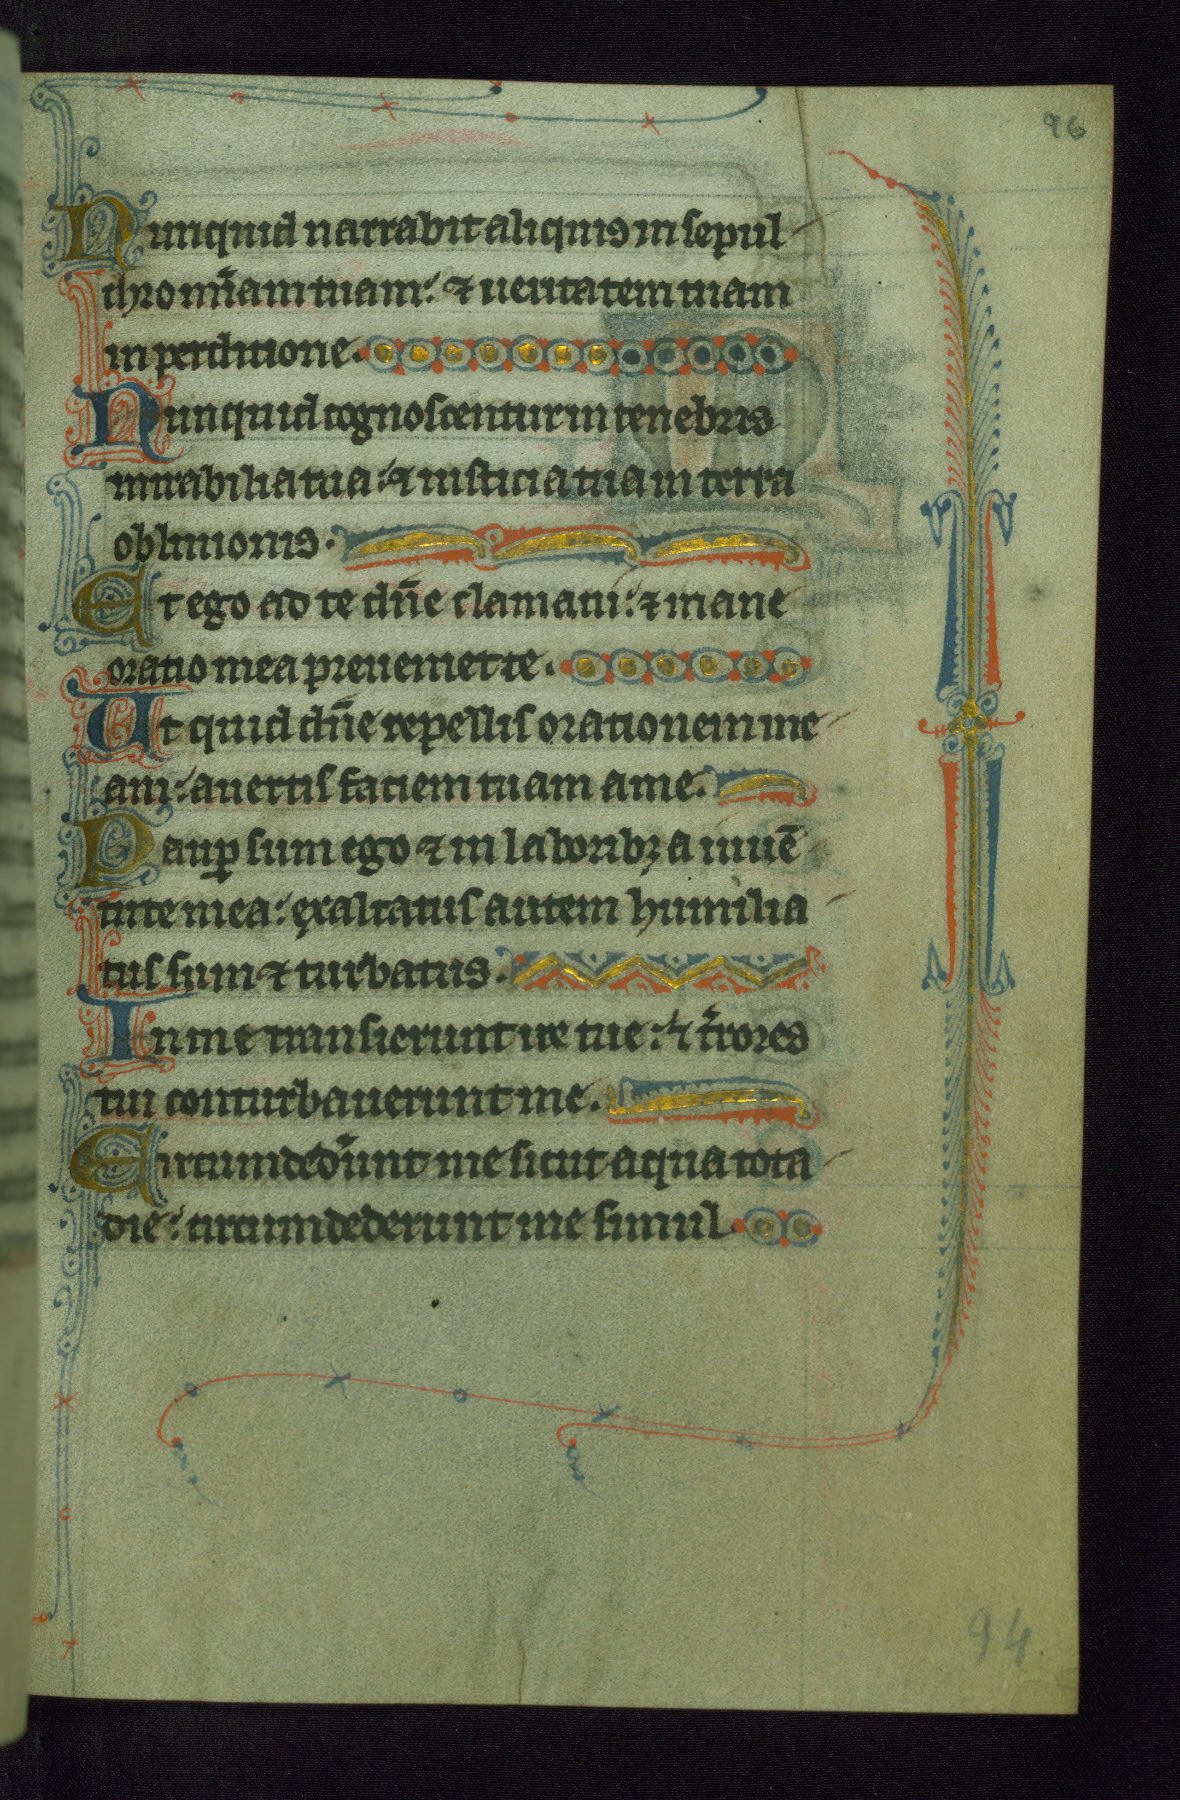 96
Nunquid narrabit aliquis in sepul
chro mīam tuam: ⁊ ueritatem tuam
in perditione.
Nunquid cognoscentur in tenebris
mirabilia tua: ⁊ iusticia tua in terra
obliuionis.
Et ego ad te dn̄e clamaui: ⁊ mane
oratio mea preueniet te.
Ut quid dn̄e repellis orationem me
am: auertis faciem tuam a me.
Paup sum ego ⁊ in laboribꝫ a iuuē
tute mea: exaltatus autem humilia
tus sum ⁊ turbatus.
In me transierunt ire tue: ⁊ t̄rores
tui conturbauerunt me.
Circumded̄unt me sicut aqua tota
die: circumdederunt me simul.
94